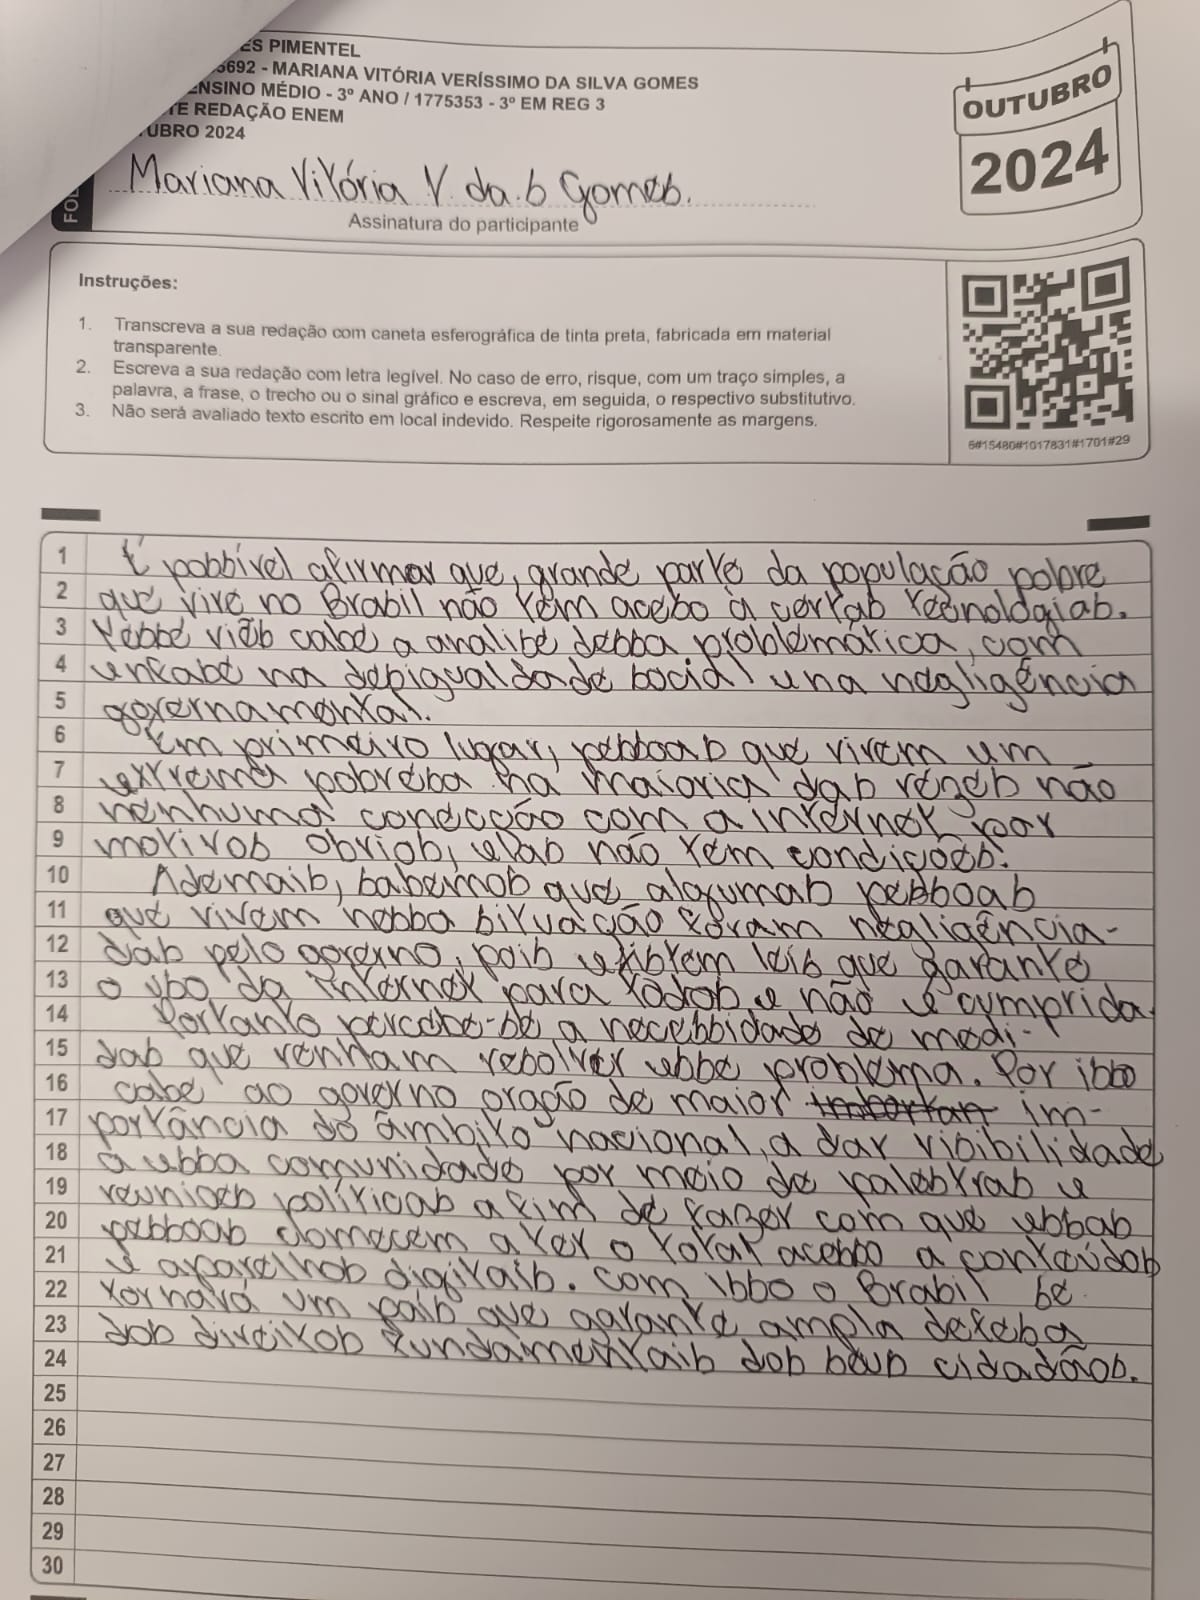 ES PIMENTEL
5692 - MARIANA VITÓRIA VERÍSSIMO DA SILVA GOMES
ENSINO MÉDIO - 3º ANO / 1775353 - 3º EM REG 3
TE REDAÇÃO ENEM
UBRO 2024
Mariana Vitória V. da.s Gomes.
Assinatura do participante
FOL
OUTUBRO
2024
Instruções:
1. Transcreva a sua redação com caneta esferográfica de tinta preta, fabricada em material
transparente.
2. Escreva a sua redação com letra legível. No caso de erro, risque, com um traço simples, a
palavra, a frase, o trecho ou o sinal gráfico e escreva, em seguida, o respectivo substitutivo.
3. Não será avaliado texto escrito em local indevido. Respeite rigorosamente as margens.
6#15480#1017831#1701#29
1 É possível afirmar que, grande parte da população pobre
2 que vive no Brasil não tem acesso à certas tecnologias.
3 Nesse viés cabe a analise dessa problemática, com
4 enfase na desigualdade social e na negligência
5 governamental.
6 Em primeiro lugar, pessoas que vivem um
7 extrema pobresa na maioria das vezes não
8 nenhuma conecção com a internet por
9 motivos obvios, elas não tem condições.
10 Ademais, sabemos que algumas pessoas
11 que vivem nessa situação foram negligência-
12 das pelo governo, pois existem leis que garante
13 o uso da internet para todos e não é cumprida.
14 Portanto percebe-se a necessidade de medi-
15 das que venham resolver esse problema. Por isso
16 cabe ao governo orgão de maior importan im-
17 portância do âmbito nacional, a dar visibilidade
18 a essa comunidade por meio de palestras e
19 reuniões políticas a fim de fazer com que essas
20 pessoas comecem a ter o total acesso a conteúdos
21 e aparelhos digitais. com isso o Brasil se
22 tornará um país que garante ampla defesa
23 dos direitos fundamentais dos seus cidadãos.
24
25
26
27
28
29
30